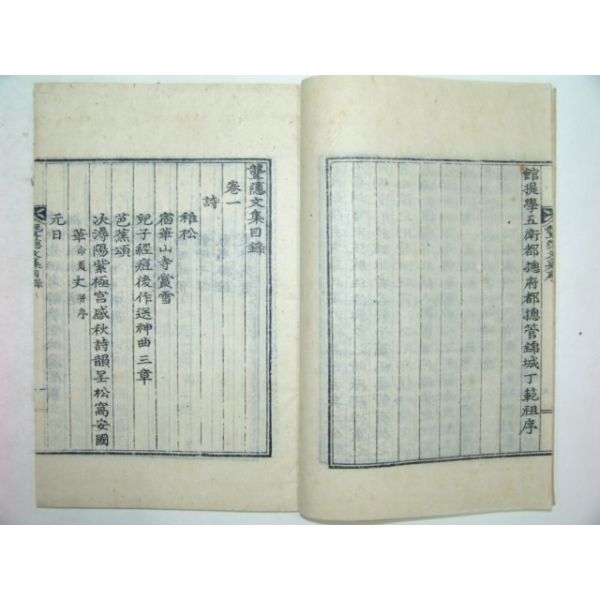 館提學五衛都摠府都摠管錦城丁範祖序
聾隱文集目錄
卷一
詩
稚松
宿華山寺賞雪
兒子經痘後作送神曲三章
芭蕉頌
次潯陽紫極宮感秋詩韻呈松窩安國
華命夏丈并序
元日
聾隱文集目錄 一